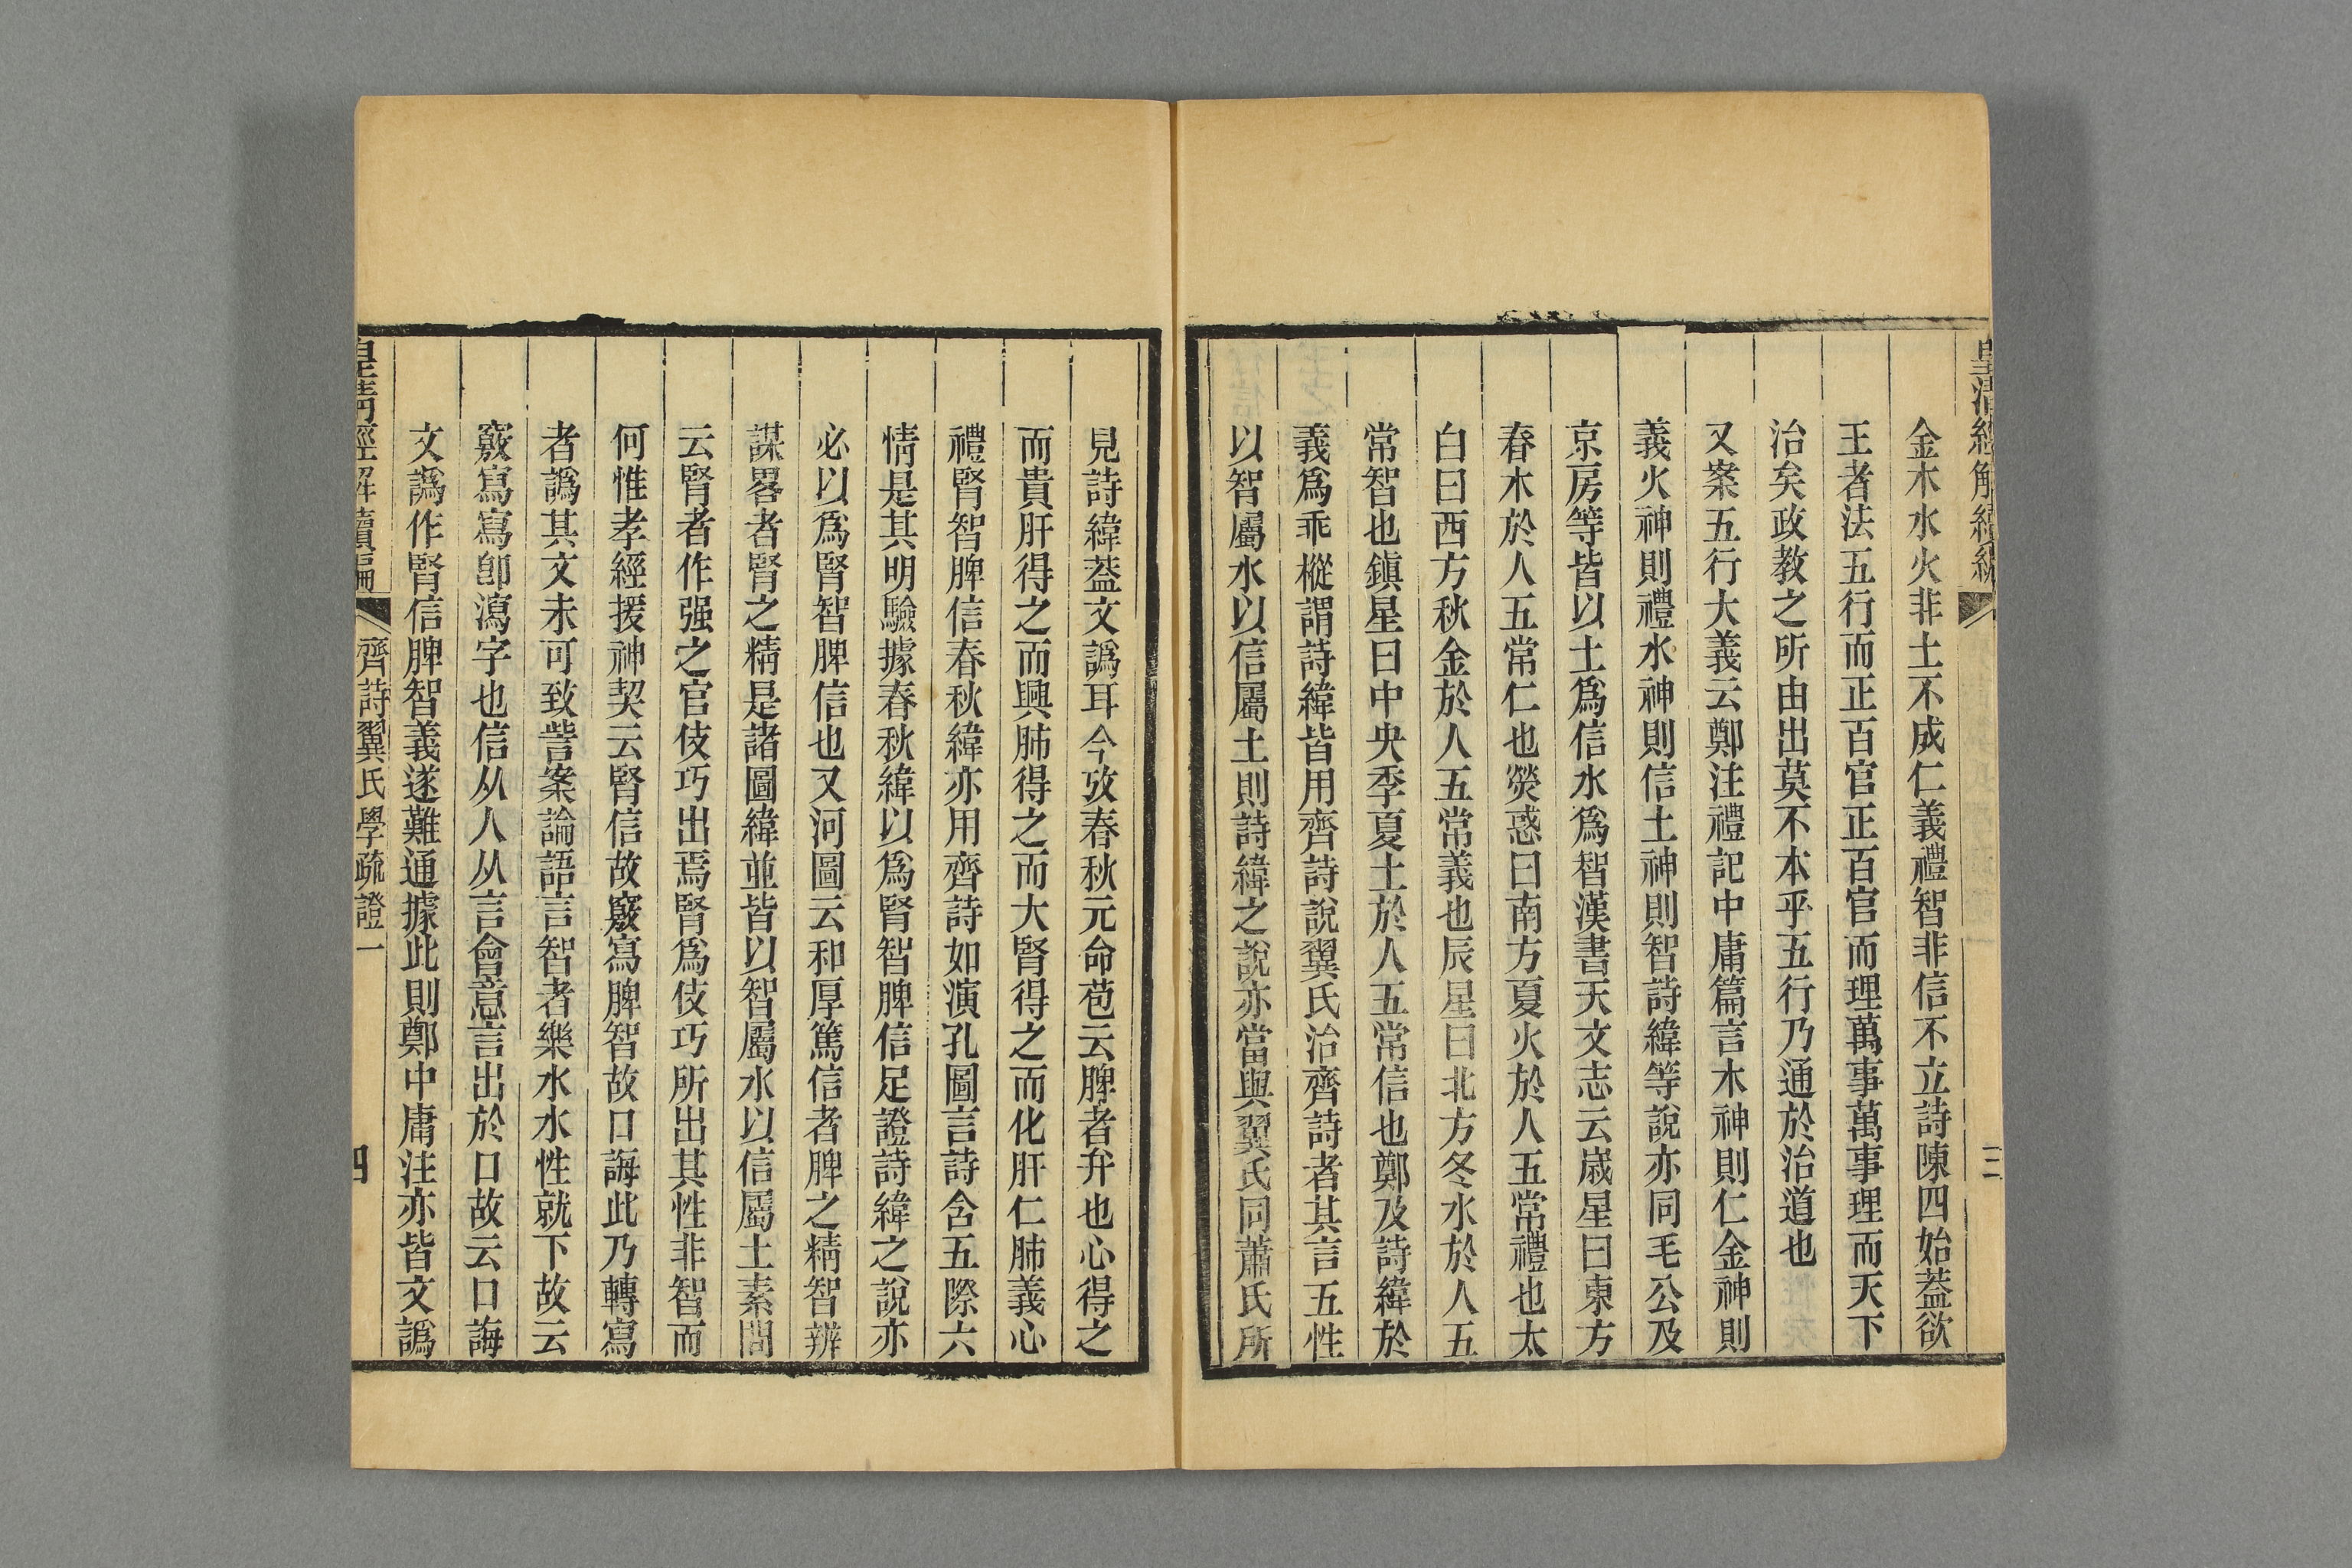 皇清經解續編
三
金木水火非土不成仁義禮智非信不立詩陳四始葢欲
王者法五行而正百官正百官而理萬事萬事理而天下
治矣政教之所由出莫不本乎五行乃通於治道也
又案五行大義云鄭注禮記中庸篇言木神則仁金神則
義火神則禮水神則信土神則智詩緯等說亦同毛公及
京房等皆以土爲信水爲智漢書天文志云歲星曰東方
春木於人五常仁也熒惑曰南方夏火於人五常禮也太
白曰西方秋金於人五常義也辰星曰北方冬水於人五
常智也鎭星曰中央季夏土於人五常信也鄭及詩緯於
義爲乖樅謂詩緯皆用齊詩說翼氏治齊詩者其言五性
以智屬水以信屬土則詩緯之說亦當與翼氏同蕭氏所
見詩緯葢文譌耳今攷春秋元命苞云脾者弁也心得之
而貴肝得之而興肺得之而大腎得之而化肝仁肺義心
禮腎智脾信春秋緯亦用齊詩如演孔圖言詩含五際六
情是其明驗據春秋緯以爲腎智脾信足證詩緯之說亦
必以爲腎智脾信也又河圖云和厚篤信者脾之精智辨
謀畧者腎之精是諸圖緯並皆以智屬水以信屬土素問
云腎者作强之官伎巧出焉腎爲伎巧所出其性非智而
何惟孝經援神契云腎信故竅寫脾智故口誨此乃轉寫
者譌其文未可致訾案論語言智者樂水水性就下故云
竅寫寫卽瀉字也信从人从言會意言出於口故云口誨
文譌作腎信脾智義遂難通據此則鄭中庸注亦皆文譌
皇淸經解續編
齊詩翼氏學疏證一
四